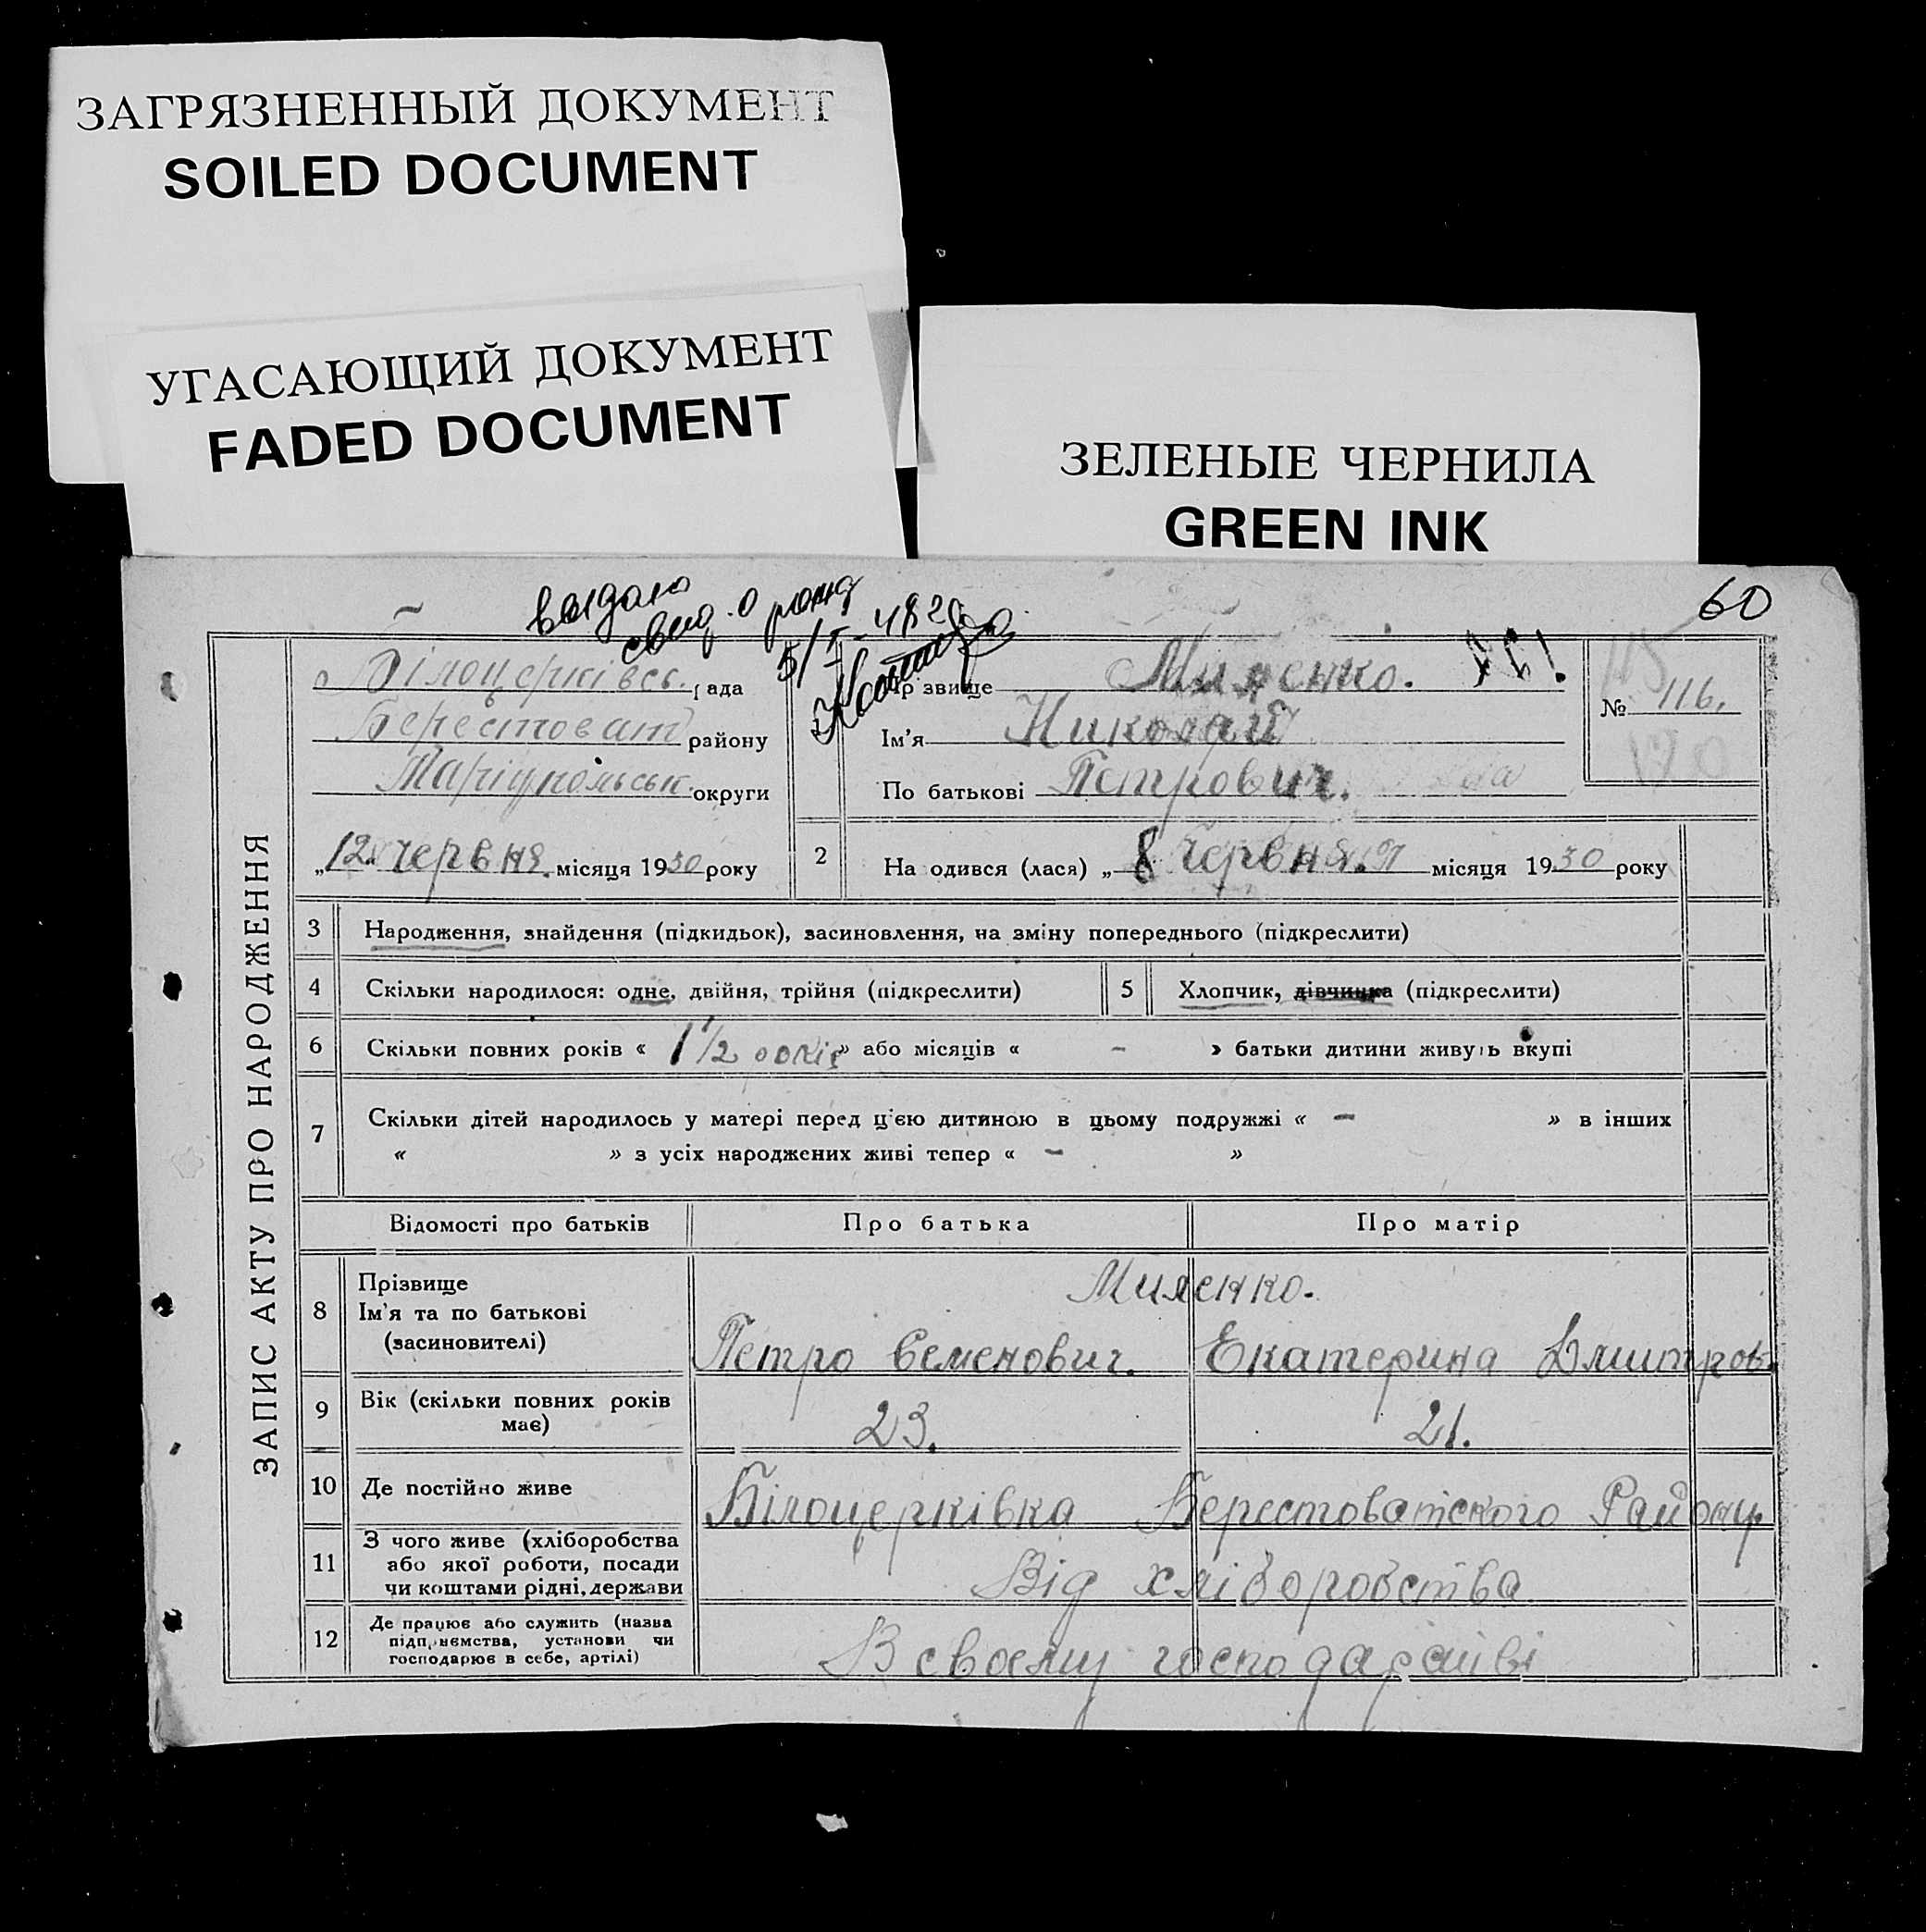 ЗАГРЯЗНЕННЫЙ ДОКУМЕНТ
SOILED DOCUMENT
УГАСАЮЩИЙ ДОКУМЕНТ
FADED DOCUMENT
ЗЕЛЕНЫЕ ЧЕРНИЛА
GREEN INK
60
видано
свид. о рожд
ЗАПИС АКТУ ПРО НАРОДЖЕННЯ
Білоцерківсь. рада
Берестоват району
Маріупольськ. округи
„12“ червня. місяця 1930 року
Пр звище
Ім'я Николай
По батькові Петрович.
№ 116.
2 На одився (лася) „ 8 Червня. місяця 1930 року
3 Народження, знайдення (підкидьок), засиновлення, на зміну попереднього (підкреслити)
4 Скільки народилося: одне, двійня, трійня (підкреслити)
5 Хлопчик, дівчинка (підкреслити)
6 Скільки повних років « 1 1/2 » або місяців « - » батьки дитини живуть вкупі
7 Скільки дітей народилось у матері перед ц'єю дитиною в цьому подружжі « - » в інших
« » з усіх народжених живі тепер « - »
Відомості про батьків Про батька Про матір
8 Прізвище
Ім'я та по батькові
(засиновителі)
Петро Семенович. Екатерина Дмитров.
9 Вік (скільки повних років
має)
23. 21.
10 Де постійно живе Білоцерківка Берестоватского Району
11 З чого живе (хліборобства
або якої роботи, посади
чи коштами рідні, держави
Від хліборобства
12 Де працює або служить (назва
підприємства, установи чи
господарює в себе, артілі)
В своєму господарстві